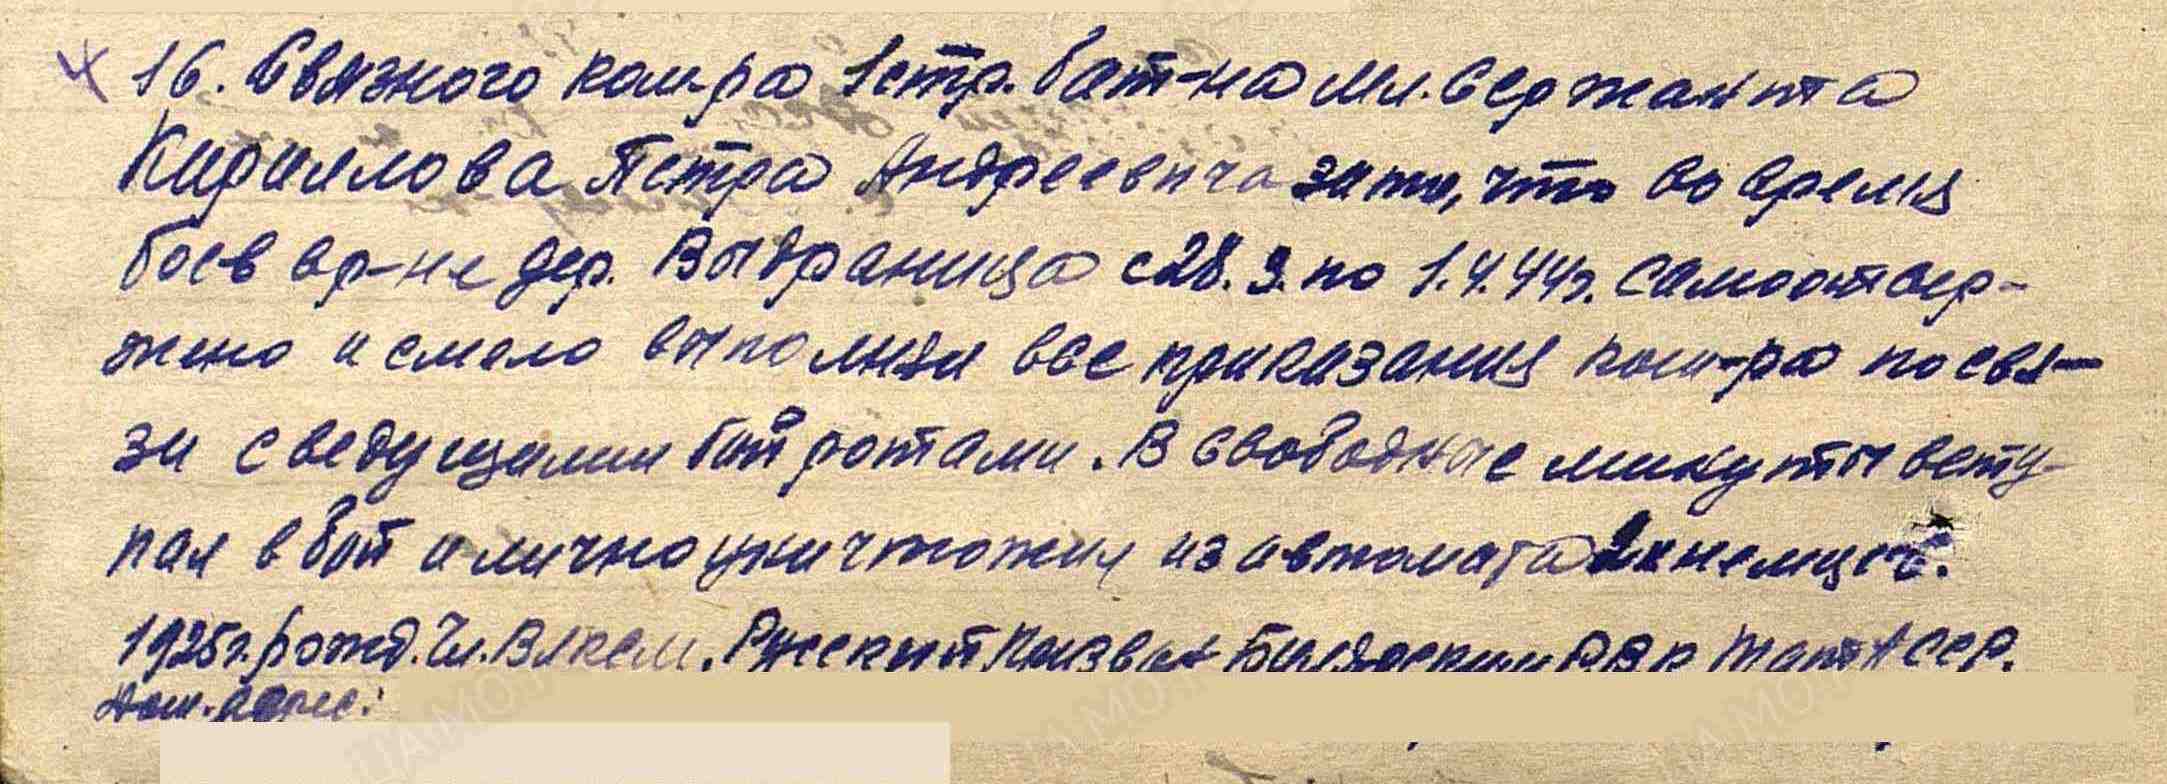 16. Связного ком-ра 1 стр. бат-на мл. сержанта
Кириллова Петра Андреевича за то, что во время
боев в р-не дер. Выдраница с 28.3. по 1.4.44г. самоотвер-
жено и смело выполнял все приказания ком-ра по свя-
зи с ведущими бой ротами. В свободные минуты всту-
пал в бой и лично уничтожил из автомата 2х немцев.
1925г. рожд. Чл. ВЛКСМ. Русский Призван Билярским РВК ТатАССР.
Дом. адрес: